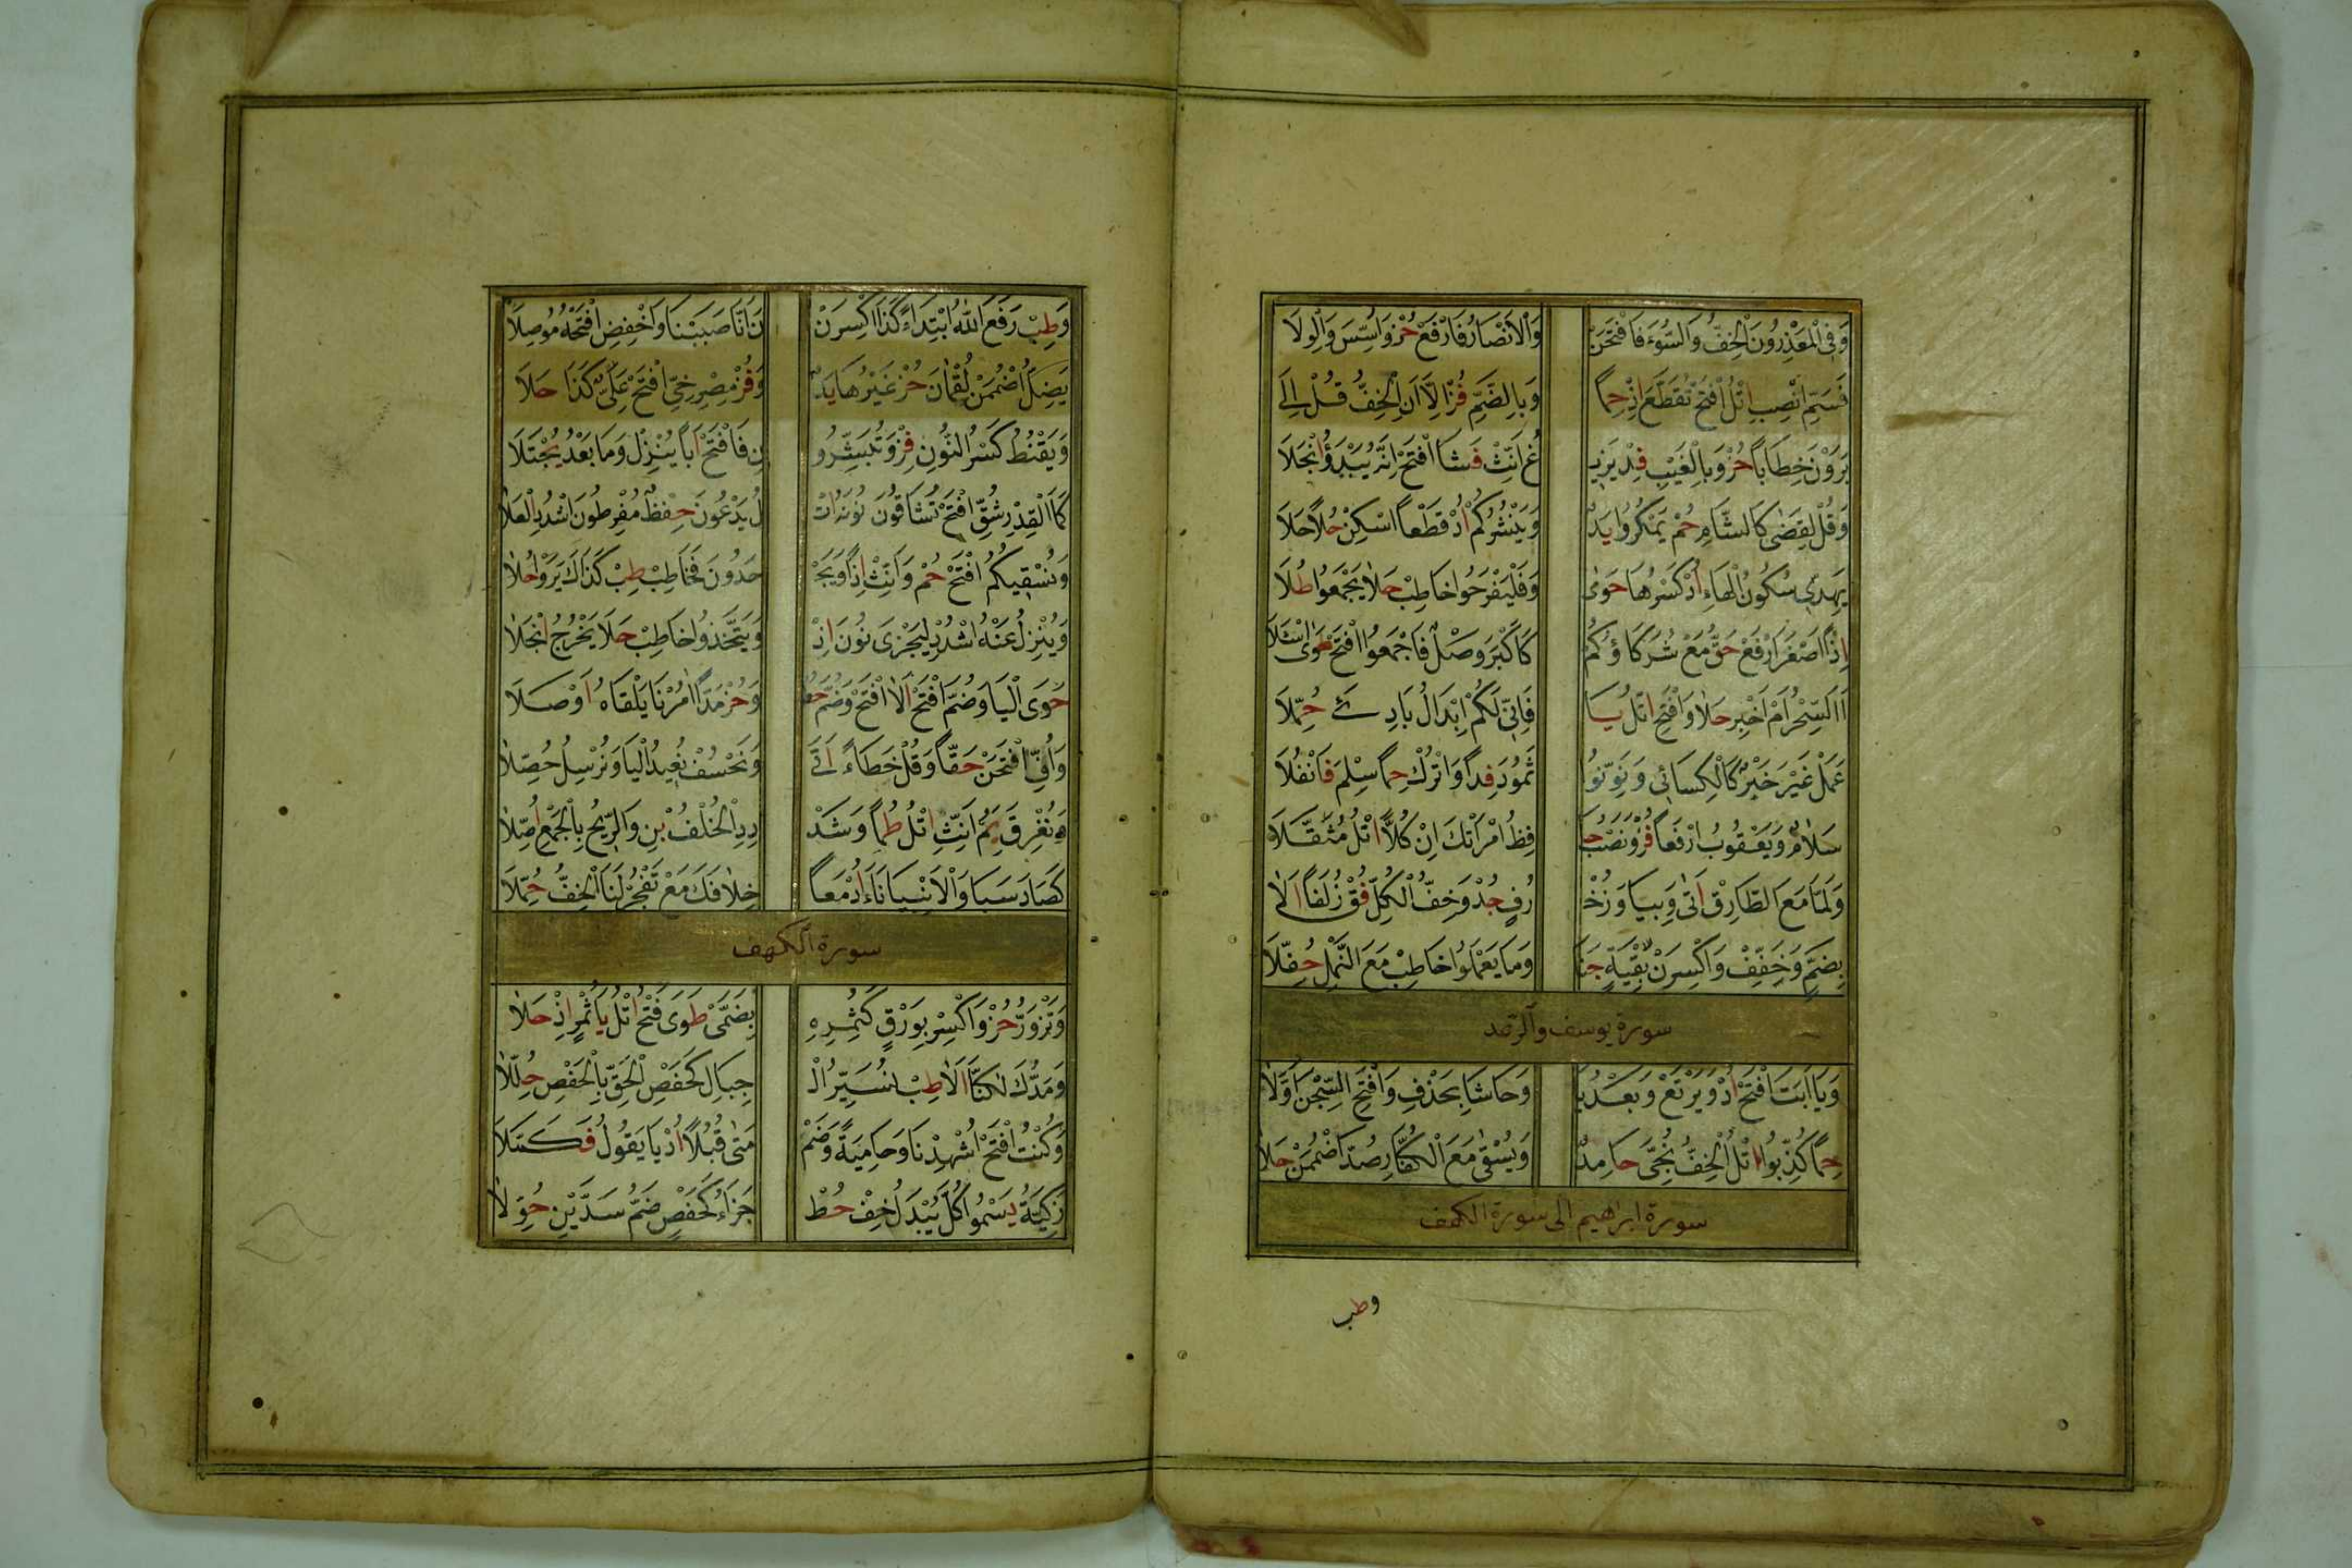 وَفِي الْمُعَذِّرُونَ الْخِفُّ وَالسُّوءَ فَافْتَحَنْ وَالْأَنْصَارُ فَارْفَعْ حُزْ وَاُسِّسَ وَالْوِلَا
فَسَمِّ انْصِبِ اتْلُ افْتَحْ تُقَطَّعَ اِذْ حِمًا وَبِالضَّمِّ فُزْ اِلَّا اَنِ الْخِفُّ قُلْ اِلَى
يَرَوْنَ خِطَابًا حُزْ وَبِالْغَيْبِ فِدْ يَزِيـ ـغُ اَنِّثْ فَشَا افْتَحْ اِنَّهُ يَبْدَؤُ انْجَلَا
وَقُلْ لَقَضَى كَالشَّامِ حُمْ يَمْكُرُوا يَدٌ وَيَنْشُرُكُمْ اُدْ قَطْعًا اسْكِنْ حُلًا حَلَا
يَهِدِّي سُكُونُ الْهَاءِ اُدْ كَسْرُهَا حَوَى وَفَلْيَفْرَحُوا خَاطِبْ حَلَا يَجْمَعُوا طُلَا
اِذًا اَصْغَرَ ارْفَعْ حَقُّ مَعْ شُرَكَاؤُكُمْ كَاَكْبَرَ وَصْلُ فَاجْمَعُوا افْتَحْ طَوَى اسْئَلَا
اَاَلسِّحْرُ اَمْ اَخْبِرْ حَلَا وَافْتَحِ اتْلُ يَا فَاِنِّي لَكُمْ اِبْدَالُ بَادِئَ حُمِّلَا
عَمَلْ غَيْرَ خَبْرٌ كَالْكِسَائِي وَنَوِّنُوا ثَمُودَ فِدًا وَاتْرُكْ حِمًا سِلْمَ فَانْقُلَا
سَلَامٌ وَيَعْقُوبُ ارْفَعًا فُزْ وَنَصْبُ حَا فِظُ امْرَأَتَكَ اِنْ كُلًّا اتْلُ مُثَقَّلَا
وَلَمَّا مَعَ الطَّارِقْ اَتَى وَبِيَا وَزُخْـ ـرُفٍ جُدْ وَخِفُّ الْكُلِّ فُقْ زُلَفًا اَلَا
بِضَمٍّ وَخَفِّفْ وَاكْسِرَنْ بِقْيَةٍ جَنَا وَمَا يَعْمَلُوا خَاطِبْ مَعَ النَّمْلِ حُفِّلَا
سورة يوسف والرعد
وَيَا اَبَتَ افْتَحْ اُدْ وَيَرْتَعْ وَبَعْدُ يَا وَحَاشَا بِحَذْفٍ وَافْتَحِ السِّجْنَ اَوَّلَا
حِمًا كُذِّبُوا اتْلُ الْخِفُّ نُجِّيَ حَامِدٌ وَيُسْقَى مَعَ الْكُفَّارِ صُدَّ اضْمُمَنْ حَلَا
سورة ابراهيم الى سورة الكهف
وطب
وَطِبْ رَفْعَ اللّٰهُ ابْتِدَاءً كَذَا اكْسِرَنْـ ـنَ اَنَّا صَبَبْنَا وَاخْفِضِ افْتَحْهُ مُوصِلَا
يَضِلُّ اضْمُمَنْ لُقْمَانَ حُزْ غَيْرُهَا يَدٌ وَفُزْ مُصْرِخِيِّ افْتَحْ عَلِيٌّ كَذَا حَلَا
وَيَقْنُطُ كَسْرُ النُّونِ فِزْ وَتُبَشِّرُو نِ فَافْتَحْ اَبًا يُنْزِلْ وَمَا بَعْدُ يُجْتَلَا
كَمَا الْقَدْرِ شُقِّ افْتَحْ تُشَاقُّونَ نُونَهُ اتْـ ـلُ يَدْعُونَ حِفْظٌ مُفْرِطُونَ اشْدُدِ الْعُلَا
وَنُسْقِيكُمُ افْتَحْ حُمْ وَاَنِّثْ اِذًا وَيَجْـ ـحَدُونَ فَخَاطِبْ طِبْ كَذَاكَ يَرَوْا حُلَا
وَيُنْزِلُ عَنْهُ اشْدُدْ لِيَجْزِيَ نُونَ اِذْ وَيَتَّخِذُوا خَاطِبْ حَلَا يَخْرُجُ انْجَلَا
حَوَى الْيَا وَضُمَّ افْتَحْ اَلَا افْتَحْ وَضُمَّ حُطْ وَحُزْ مَدَّ اٰمَرْنَا يَلْقَاهُ اَوْصَلَا
وَاُفٍّ افْتَحَنْ حَقًّا وَقُلْ خَطَاءً اَتَى وَنَخْسُفْ نُعِيدُ الْيَا وَنُرْسِلُ حُصِّلَا
وَنُغْرِقَ يَمٌّ اَنِّثِ اتْلُ طُمًا وَشَدْ دِدِ الْخُلْفُ بِنْ وَالرِّيحُ بِالْجَمْعِ اُصِّلَا
كَصَادَ سَبَا وَالْاَنْبِيَا نَاءَ اُدْ مَعًا خِلَافَكَ مَعْ تَفْجُرْ لَنَا الْخِفُّ حُمِّلَا
سورة الكهف
وَتَزْوَرُّ حُزْ وَاكْسِرْ بِوَرْقٍ كَثُمْرِهِ بِضَمَّيْ طَوَى فَتْحُ اتْلُ يَا ثُمْرٍ اِذْ حَلَا
وَمَدُّكَ لٰكِنَّا اَلَا طِبْ نُسَيِّرُ الْـ ـجِبَالَ كَحَفْصِ الْحَقِّ بِالْخَفْضِ حُلِّلَا
وَكُنْتَ افْتَحْ اَشْهَدْنَا وَحَامِيَةً وَضَمْـ ـمَتَيْ قُبُلًا اُدْ يَا يَقُولُ فَكَمَّلَا
زَكِيَّةَ يَسْمُو كُلُّ يُبْدِلَ خِفَّ حُطْ جَزَاءُ كَحَفْصٍ ضَمُّ سَدَّيْنِ حُوِّلَا